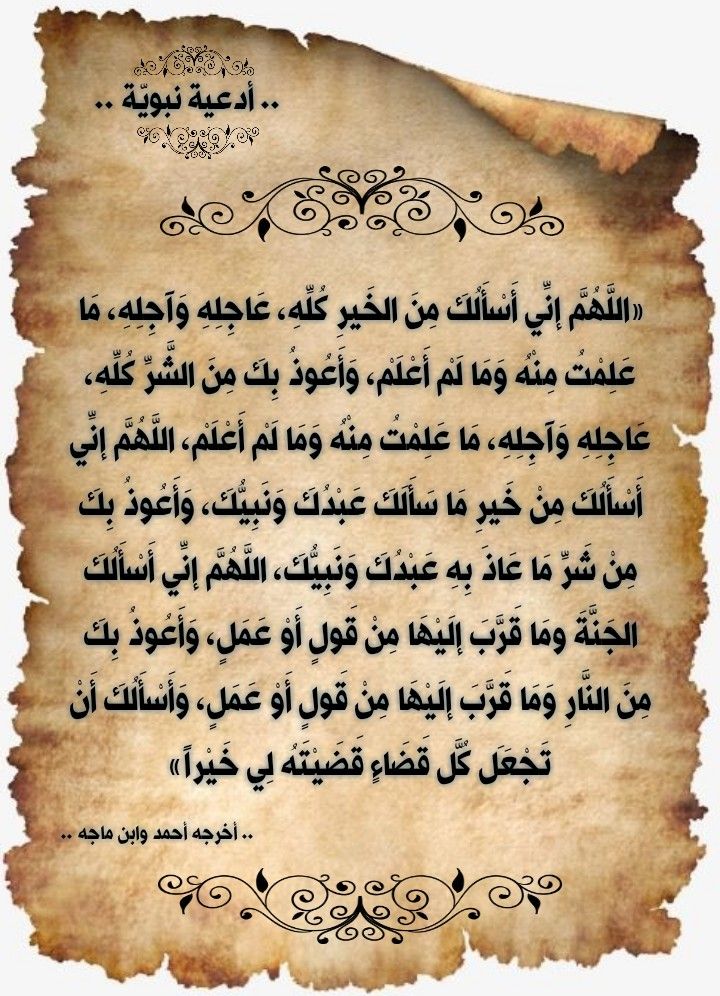 .. أدعية نبويّة ..
«اللَّهُمَّ إنِّي أَسْأَلُكَ مِنَ الخَيرِ كُلِّهِ، عَاجِلِهِ وَآجِلِهِ، مَا
عَلِمْتُ مِنْهُ وَمَا لَمْ أَعْلَمْ، وَأَعُوذُ بِكَ مِنَ الشَّرِّ كُلِّهِ،
عَاجِلِهِ وَآجِلِهِ، مَا عَلِمْتُ مِنْهُ وَمَا لَمْ أَعْلَمْ، اللَّهُمَّ إنِّي
أَسْأَلُكَ مِنْ خَيرِ مَا سَأَلَكَ عَبْدُكَ وَنَبِيُّكَ، وَأَعُوذُ بِكَ
مِنْ شَرِّ مَا عَاذَ بِهِ عَبْدُكَ وَنَبِيُّكَ، اللَّهُمَّ إنِّي أَسْأَلُكَ
الجَنَّةَ ومَا قَرَّبَ إلَيْهَا مِنْ قَولٍ أَوْ عَمَلٍ، وَأَعُوذُ بِكَ
مِنَ النَّارِ وَمَا قَرَّبَ إلَيْهَا مِنْ قَولٍ أَوْ عَمَلٍ، وَأَسْأَلُكَ أَنْ
تَجْعَلَ كُلَّ قَضَاءٍ قَضَيْتَهُ لِي خَيْراً»
.. أخرجه أحمد وابن ماجه ..